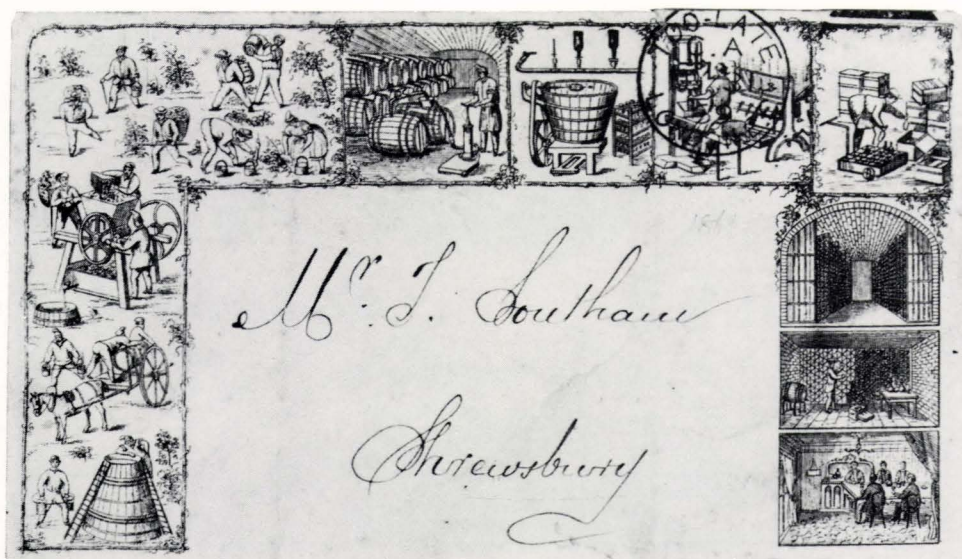 D-LATE
A
Mr. T. Southam
Shrewsbury